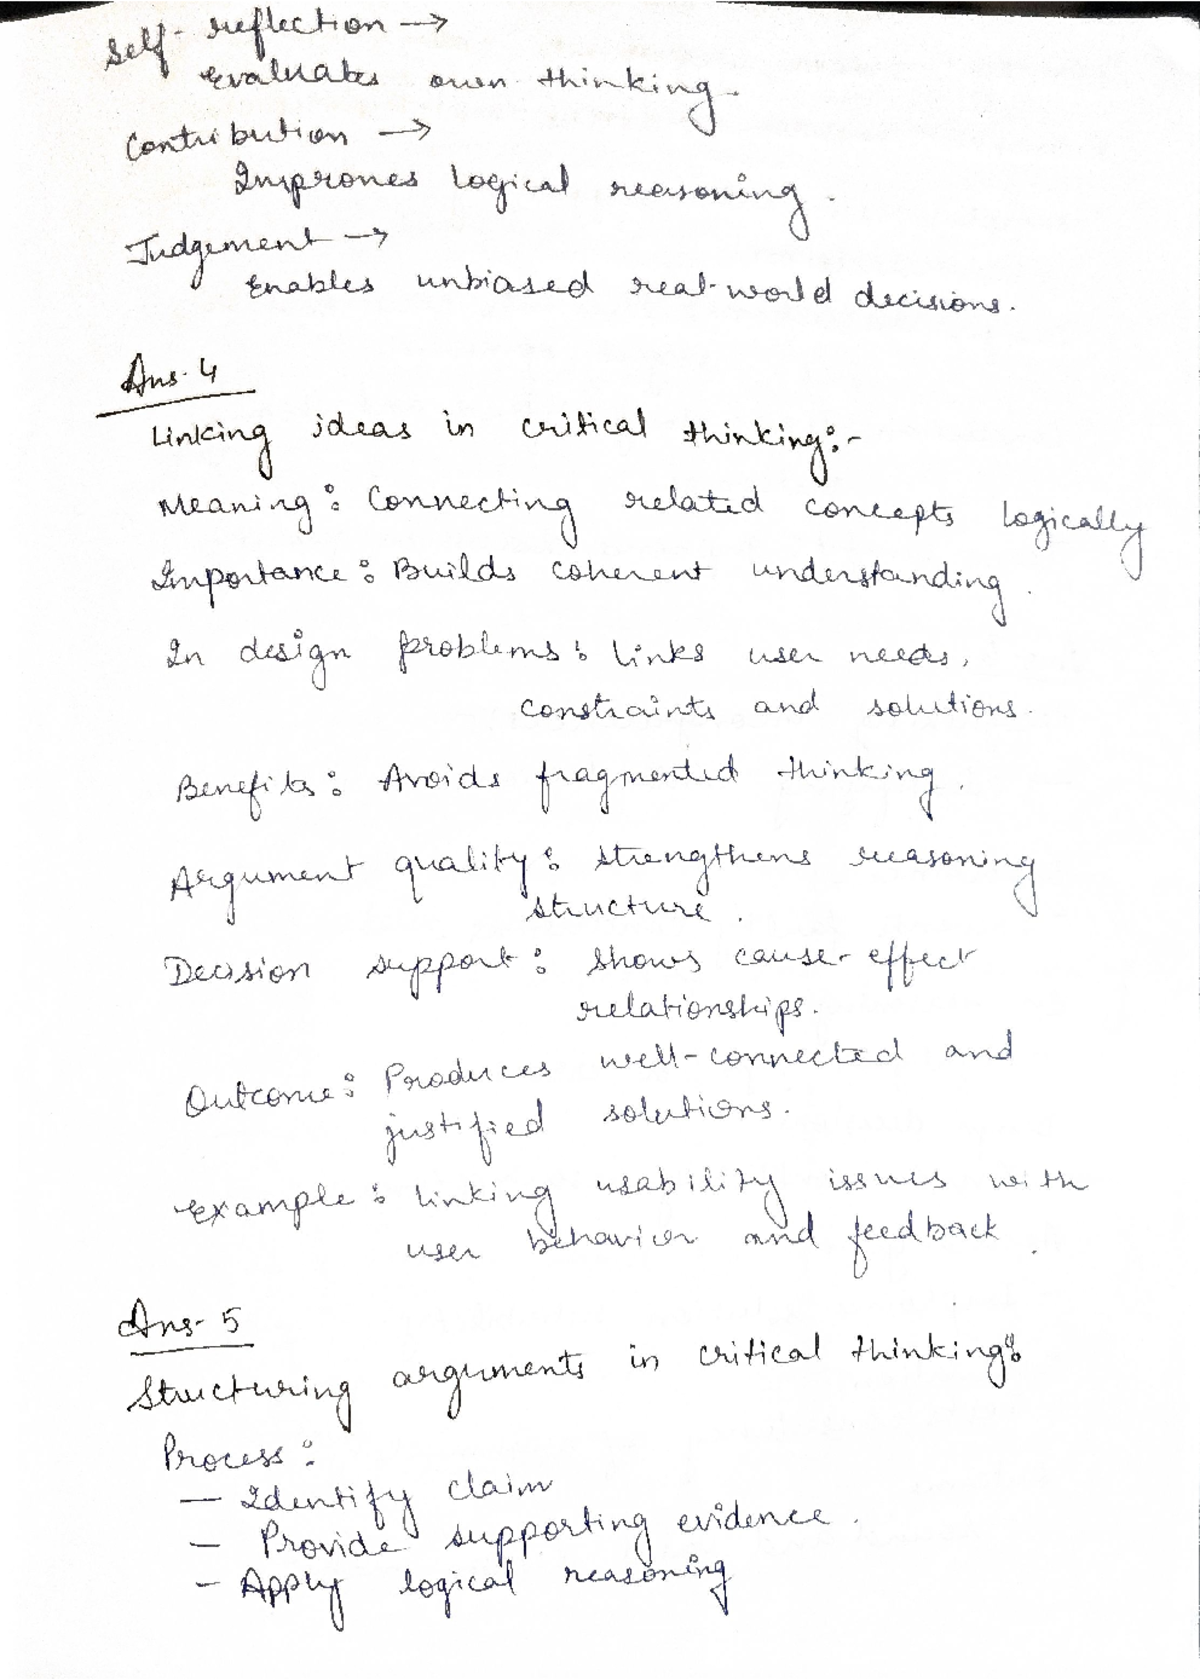 Self-reflection →
Evaluates own thinking.
Contribution →
Improves logical reasoning.
Judgement →
Enables unbiased real-world decisions.
Ans-4
Linking ideas in critical thinking:-
Meaning: Connecting related concepts logically
Importance: Builds coherent understanding.
In design problems: links user needs,
constraints and solutions.
Benefits: Avoids fragmented thinking.
Argument quality: strengthens reasoning
structure.
Decision support: shows cause-effect
relationships.
Outcome: Produces well-connected and
justified solutions.
Example: linking usability issues with
user behavior and feedback.
Ans-5
Structuring arguments in critical thinking:
Process:
— Identify claim
— Provide supporting evidence.
— Apply logical reasoning